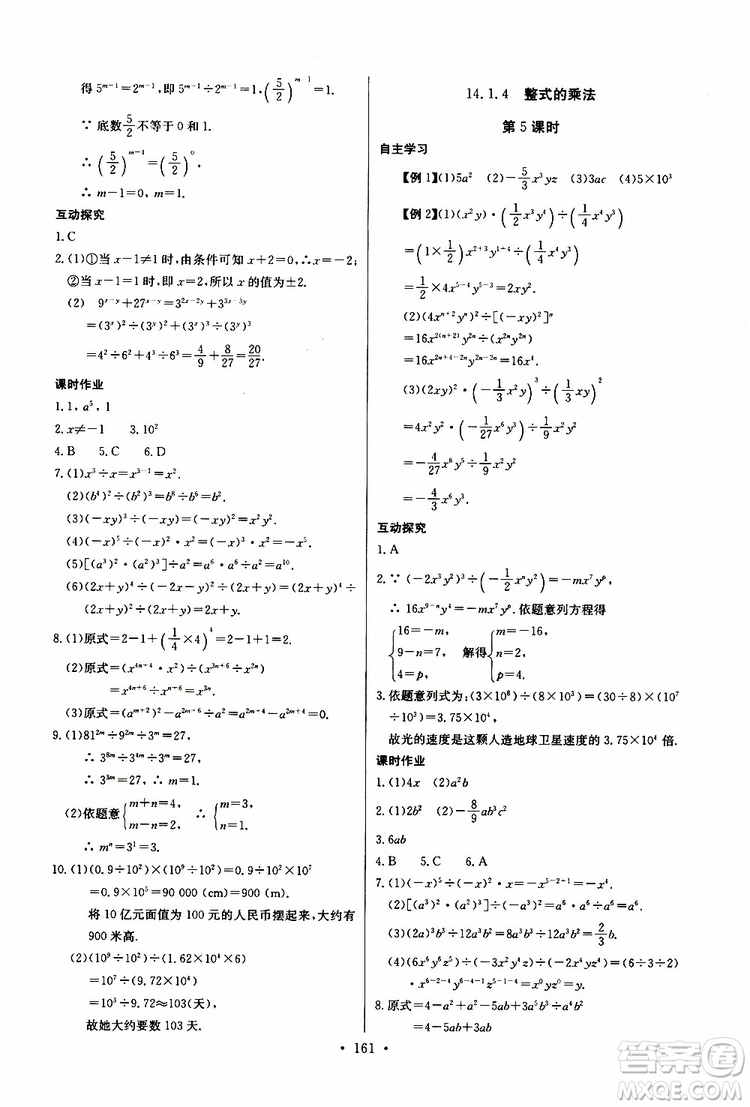 得 5^{m-1}=2^{m-1},即 5^{m-1}÷2^{m-1}=1,(5/2)^{m-1}=1.
∵ 底数 5/2 不等于 0 和 1.
∴ (5/2)^{m-1}=(5/2)^0.
∴ m-1=0, m=1.
互动探究
1. C
2. (1)①当 x-1≠1 时,由条件可知 x+2=0,∴x=-2;
②当 x-1=1 时,x=2.所以 x 的值为±2.
(2) 9^{x-y}+27^{x-y}=3^{2x-2y}+3^{3x-3y}
=(3^x)²÷(3^y)²+(3^x)³÷(3^y)³
=4²÷6²+4³÷6³=4/9+8/27=20/27.
课时作业
1. 1, a⁵, 1
2. x≠-1 3. 10²
4. B 5. C 6. D
7. (1)x³÷x=x^{3-1}=x².
(2)(b⁴)²÷(b²)³=b⁸÷b⁶=b².
(3)(-xy)³÷(-xy)=(-xy)²=x²y².
(4)(-x)⁵÷(-x)³÷(-x)=(-x)²÷(-x)=-x.
(5)[(a³)²·(a²)³]÷a²=a⁶·a⁶÷a²=a¹⁰.
(6)(2x+y)⁴÷(-2x-y)²÷(2x+y)=(2x+y)⁴÷
(2x+y)²÷(2x+y)=2x+y.
8. (1)原式=2-1+(1/4×4)⁴=2-1+1=2.
(2)原式=(x^{4n+4}·x^{2n})÷(x^{3n+6}÷x^{2n})
=x^{6n+4}÷x^{n+6}=x^{5n-2}.
(3)原式=(a^{m+2})²-a^{2m+4}=a^{2m+4}-a^{2m+4}=0.
9. (1)81^{2m}÷9^{2m}÷3^m=27.
∴ 3^{8m}÷3^{4m}÷3^m=27, ∴ 3^{3m}=27, ∴ m=1.
(2)依题意{m+n=4, m-n=2. ∴ {m=3, n=1.
∴ m^n=3¹=3.
10. (1)(0.9÷10²)×(10⁹÷10²)=0.9÷10²×10⁷
=0.9×10⁵=90 000 (cm)=900(m).
将 10 亿元面值为 100 元的人民币摆起来,大约有
900 米高.
(2)(10⁹÷10²)÷(1.62×60×10³)
=10⁷÷(9.72×10⁴)
=10³÷9.72≈103(天),
故她大约要数 103 天.
14.1.4 整式的乘法
第 5 课时
自主学习
【例 1】(1)5a² (2)-5/3x³yz (3)3ac (4)5×10³
【例 2】(1)(x²y)·(1/2x³y⁴)÷(1/4xy³)
=(1×1/2)x^{2+3}y^{1+4}÷(1/4xy³)
=1/2×4x^{5-1}y^{5-3}
=2x⁴y².
(2)(4x^{n+2}y^n)²÷[(-xy)^{2n}]
=16x^{2(n+2)}y^{2n}÷x^{2n}y^{2n}
=16x^{2n+4-2n}y^{2n-2n}=16x⁴.
(3)(2xy)²·(-1/3x²y)³÷(1/3xy)²
=4x²y²·(-1/27x⁶y³)÷1/9x²y²
=-4/27x⁸y⁵÷1/9x²y²
=-4/3x⁶y³.
互动探究
1. A
2. ∵ (-2x³y²)³÷(-1/2x^ny²)=-mx⁷y^p.
∴ 16x^{9-n}y⁴=-mx⁷y^p.依题意列方程得
{16=-m, 9-n=7, 4=p, 解得{m=-16, n=2, p=4.
3. 依题意列式为:(3×10⁸)÷(8×10³)=(30÷8)×(10⁷
÷10³)=3.75×10⁴.
故光的速度是这颗人造地球卫星速度的 3.75×10⁴ 倍.
课时作业
1. (1)4x (2)a²b
2. (1)2b² (2)-8/9ab³c²
3. 6ab
4. B 5. C 6. A
7. (1)(-x)⁵÷(-x)²·1/x=-x^{5-2+1}=-x⁴.
(2)[(a³)²·(a²)³]÷a⁵=a⁶·a⁶÷a⁵=a⁷.
(3)(2ab)³÷12a³b²=8a³b³÷12a³b²=2/3b.
(4)(6x⁶y⁶z⁵)÷(-2x²y⁴z²)÷(-3x⁴yz)=1
·x^{6-2-4}y^{6-4-1}z^{5-2-1}=yz².
8. 原式=4-a²+a²-5ab+3a⁵b³÷a⁴b²
=4-5ab+3ab
· 161 ·
答案圈
MXQE.COM